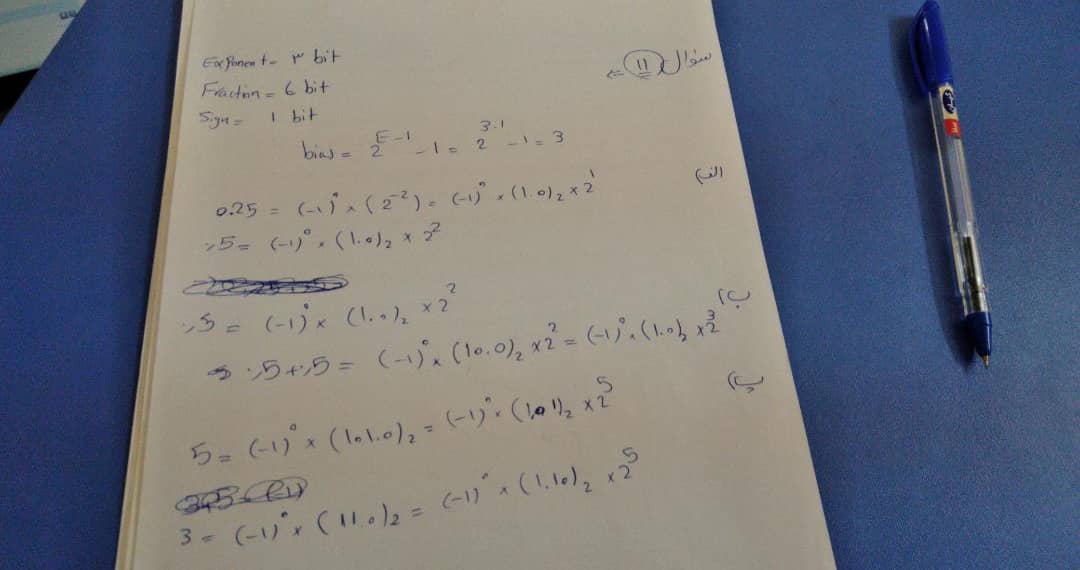 سؤال 11 ⇐
Exponent = ۳ bit
Fraction = 6 bit
Sign = 1 bit
bias = 2^(E-1) - 1 = 2^(3-1) - 1 = 3
الف)
0.25 = (-1)^0 × (2^-2) = (-1)^0 × (1.0)_2 × 2^1
.,5 = (-1)^0 × (1.0)_2 × 2^2
ب)
.,5 = (-1)^0 × (1.0)_2 × 2^2
.,5 + .,5 = (-1)^0 × (10.0)_2 × 2^2 = (-1)^0 × (1.0)_2 × 2^3
پ)
5 = (-1)^0 × (101.0)_2 = (-1)^0 × (1.01)_2 × 2^5
3 = (-1)^0 × (11.0)_2 = (-1)^0 × (1.10)_2 × 2^5